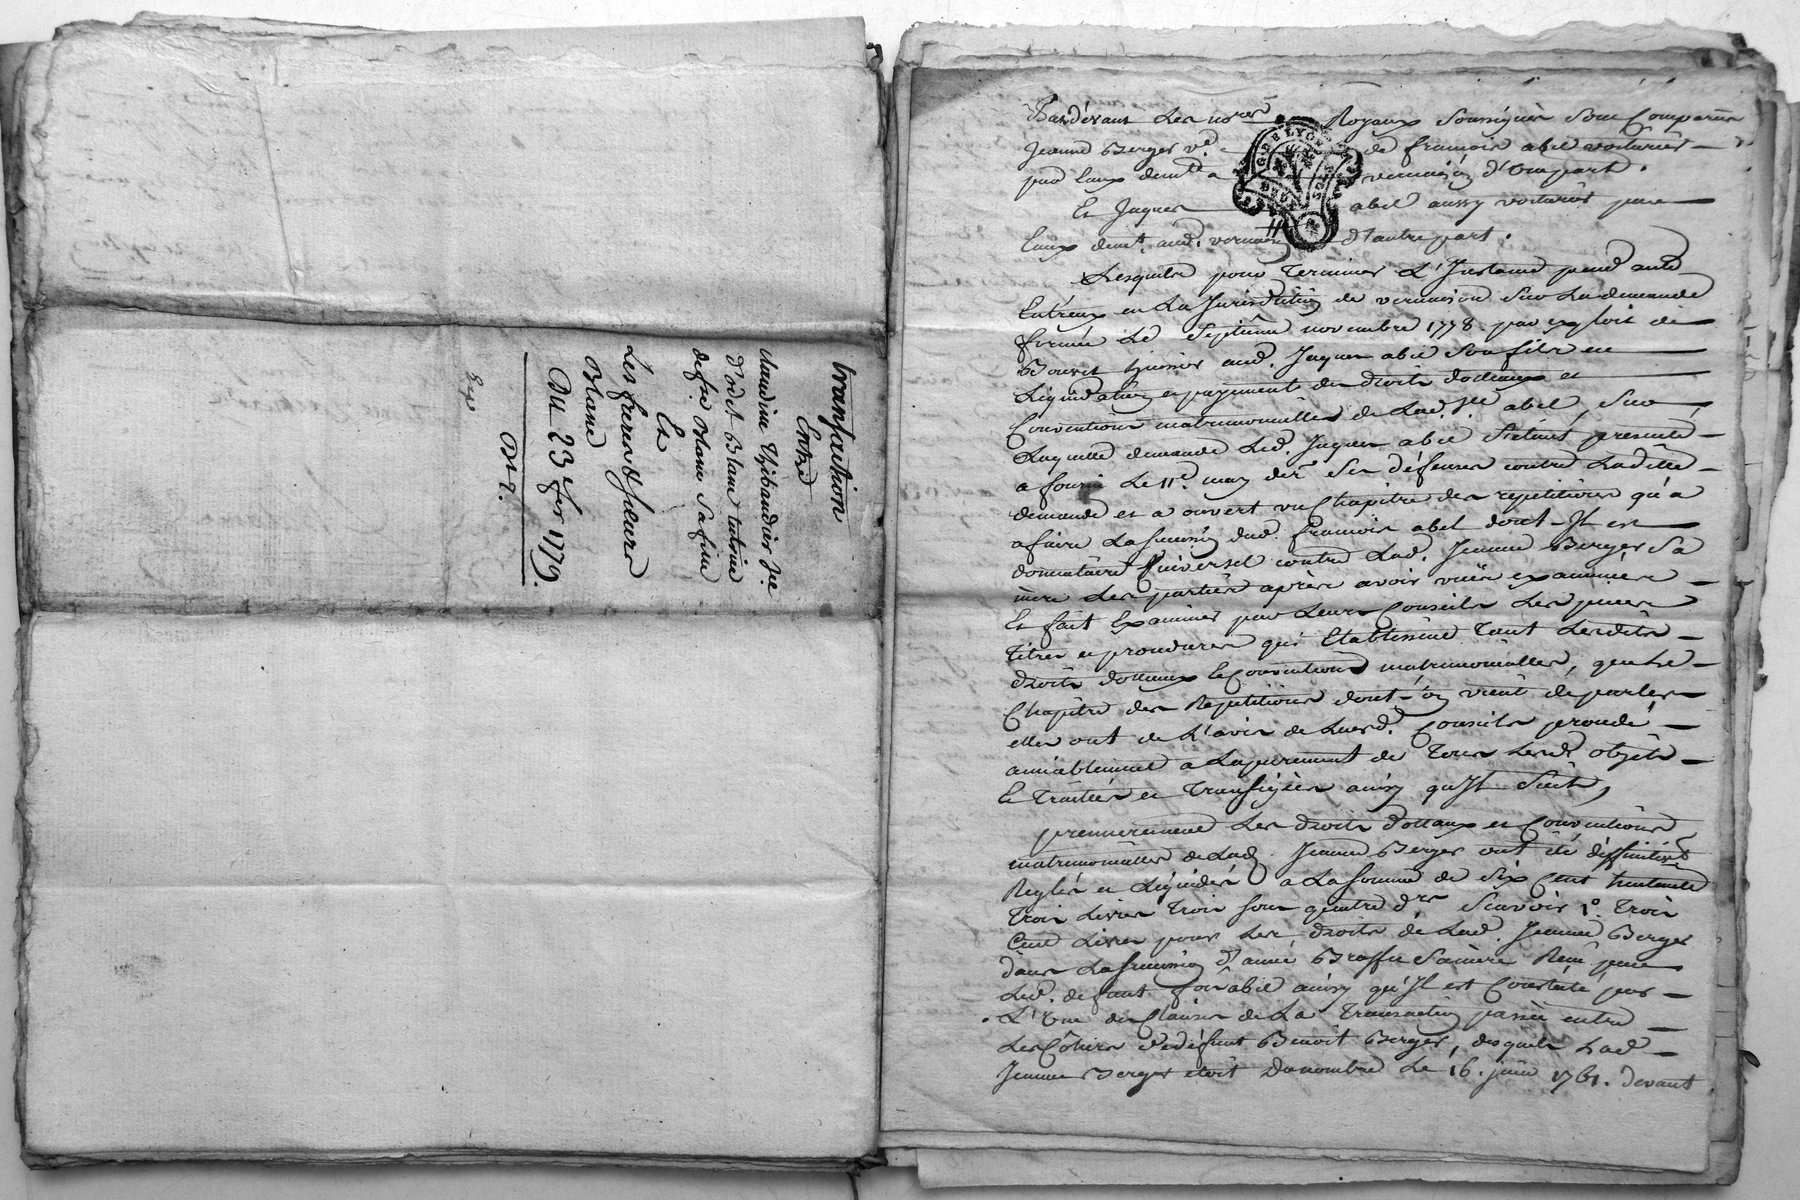 transaction
Entre
Claudine Thibaudier ve
d'odet Blanc tutrice
de fse Blanc Sa fille
Et
Les freres & sieurs
Blanc
Du 23 fer 1779.
Exp
Pardevant Les nores Royaux Soussignés Sont Comparus
Jeanne Berger ve de francois abel voiturier
par Eaux demte a vernaison d'une part.
Et Jaques abel aussy voiturier par
Eaux demt. aud. vernaison d'autre part.
Lesquels pour Terminer L'Instance pend ante
Entreux en La Jurisdiction de vernaison Sur La demande
formée Le Septieme novembre 1778. par exploit de
Bouvet huissier aud. Jaques abel Son fils en
Liquidation et payement des droits dotteaux et
Conventions matrimonialles de Lad. ve abel, Sur
Laquelle demande Led. Jaques abel S'etant presenté
a fourni Le 11e. may der Ses défenses contre Laditte
demande et a ouvert un Chapitre des repetitions qu'a
a faire La succession dud. francois abel dont Il est
donnataire universel contre Lad. Jeanne Berger Sa
mere Les parties après avoir vües examinées
Et fait Examiner par Leurs Conseils Les pieces
Titres et procedures qui Etablissent Tant Lesdits
droits dottaux et Conventions matrimonialles, que Le
Chapitre des Repetitions dont on vient de parler
elles ont de L'avis de Leursd. Conseils procedé
amiablement a L'apurement de Tous Lesds objets
Et Traitées et Transigées ainsy qu'Il Suit,
premierement Les droits dottaux et Conventions
matrimonialles de Lad. Jeanne Berger ont été deffinitivt
Reglés et Liquidés a La Somme de Six Cent
Trois Livres Trois Sous quatre drs Scavoir 1o. Trois
Cent Livres pour Les droits de Lad. Jeanne Berger
dans La succession d'anne Sa mere Recus par
Led. defunt fois abel ainsy qu'Il est Constaté par
L'Une des Clauses de La Transaction passée entre
Les Cohers de défunt Benoit Berger, desquels Lad.
Jeanne Berger etoit Du nombre Le 16. juin 1761. devant